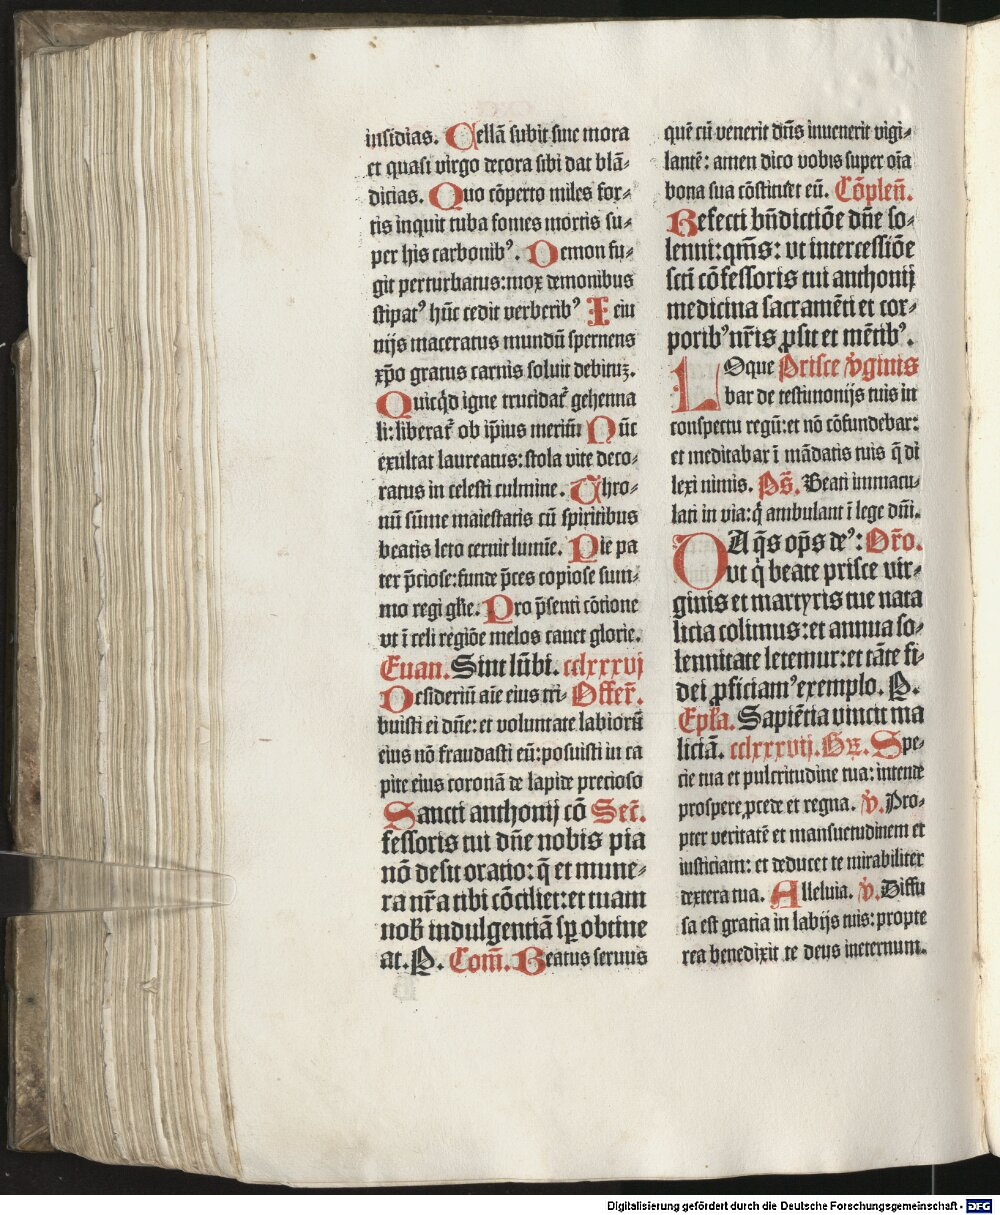 insidias. Cellā subit sine mora
et quasi virgo decora sibi dat blā-
dicias. Quo cōperto miles for-
tis inquit tuba fomes mortis su-
per his carbonibꝰ. Demon fu-
git perturbatus: mox demonibus
stipatꝰ hūc cedit verberibꝰ Ieiu
nijs maceratus mundū spernens
xp̄o gratus carnis soluit debituꝫ.
Quicq̇d igne trucidat᷑ gehenna
li: liberat᷑ ob ip̄ius meritū Nūc
exultat laureatus: stola vite deco-
ratus in celesti culmine. Thro-
nū sūme maiestatis cū spiritibus
beatis leto cernit lumīe. Pie pa
ter p̄ciose: funde p̄ces copiose sum-
mo regi gl̄ie. Pro p̄senti cōtione
vt ī celi regiōe melos canet glorie.
Euan. Sint lūbi. cclxxxvj
Desideriū aīe eius tri- Offer̄.
buisti ei dn̄e: et voluntate labiorū
eius nō fraudasti eū: posuisti in ca
pite eius coronā de lapide precioso
Sancti anthonij cō Secr̄.
fessoris tui dn̄e nobis pia
nō desit oratio: q̄ et mune-
ra nr̄a tibi cōciliet: et tuam
nob̄ indulgentiā sp̄ obtine
at. P. Com̄. Beatus seruus
quē cū venerit dn̄s inuenerit vigi-
lantē: amen dico vobis super oīa
bona sua cōstituet eū. Cōplen̄.
Refecti bn̄dictiōe dn̄e so-
lenni: qm̄s: vt intercessiōe
scti cōfessoris tui anthonij
medicina sacramēti et cor-
poribꝰ nr̄is ꝓsit et mētibꝰ.
LOque Prisce v̇ginis
bar de testimonijs tuis in
conspectu regū: et nō cōfundebar:
et meditabar ī mādatis tuis q̄ di
lexi nimis. Ps̄. Beati immacu-
lati in via: q̇ ambulant ī lege dn̄i.
DA q̄s op̄s deꝰ: Or̄o.
vt q̇ beate prisce vir-
ginis et martyris tue nata
licia colimus: et annua so-
lennitate letemur: et tāte fi-
dei ꝓficiamꝰ exemplo. P.
Epl̄a. Sapiētia vincit ma
liciā. cclxxxvij. Gr̄. Spe-
cie tua et pulcritudine tua: intende
prospere ꝓcede et regna. v̇. Pro-
pter veritatē et mansuetudinem et
iusticiam: et deducet te mirabiliter
dextera tua. Alleluia. v̇. Diffu
sa est gratia in labijs tuis: propte
rea benedixit te deus ineternum.
Digitalisierung gefördert durch die Deutsche Forschungsgemeinschaft - DFG